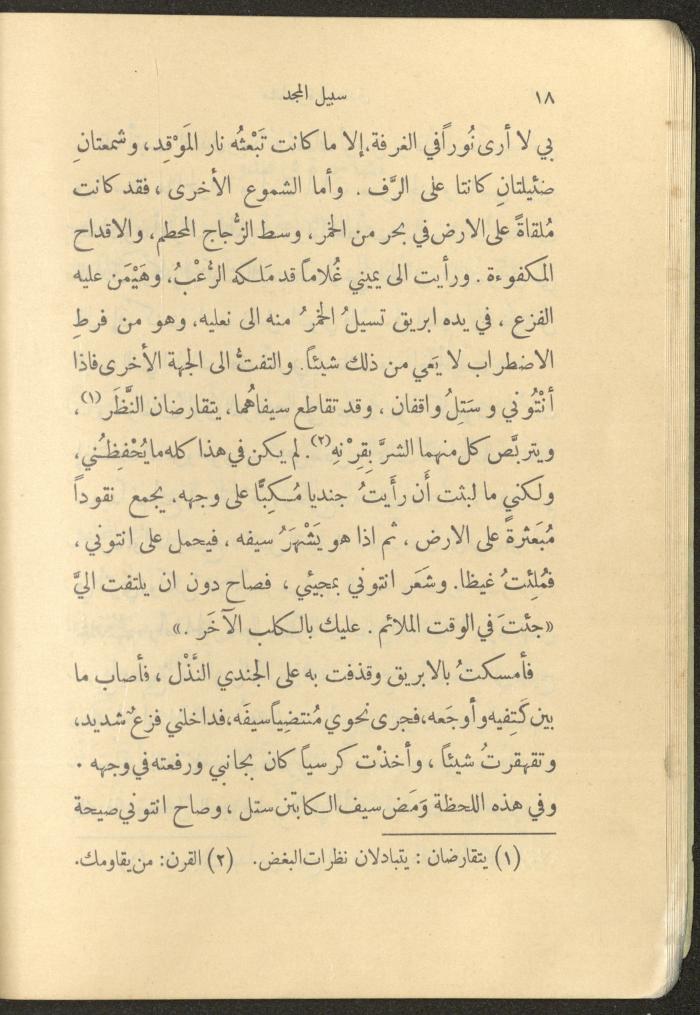 ١٨ سبيل المجد
بي لا أرى نُوراً في الغرفة، إلا ما كانت تَبْعثُه نار المَوْقِد، وشمعتانِ
ضئيلتانِ كانتا على الرَّف . وأما الشموع الأخرى ، فقد كانت
مُلقاةً على الارض في بحر من الخمر، وسط الزُّجاج المحطم، والاقداح
المكفوءة . ورأيت الى يميني غُلاماً قد مَلكه الرُّعْبُ، وهَيْمَن عليه
الفزع ، في يده ابريق تسيلُ الخمرُ منه الى نعليه، وهو من فرطِ
الاضطراب لا يَعي من ذلك شيئاً. والتفتُّ الى الجهة الأخرى فاذا
أنْتُوني و ستَلِ واقفان ، وقد تقاطع سيفاهُما، يتقارضان النَّظَر (١)،
ويتربَّص كل منهما الشرَّ بِقِرْنهِ (٢). لم يكن في هذا كله ما يُحْفِظُني،
ولكني ما لبثت أَن رأَيتُ جنديا مُكِبًّا على وجهه، يجمع نقوداً
مُبَعثرةً على الارض ، ثم اذا هو يَشْهَرُ سيفه ، فيحمل على انتوني ،
فمُلِئتُ غيظا. وشعَر انتوني بمجيئي ، فصاح دون ان يلتفت اليَّ
«جئتَ في الوقت الملائم . عليك بالكلب الآخَر .»
فأمسكتُ بالابريق وقذفت به على الجندي النَّذْل ، فأصاب ما
بين كَتِفيه وأوجَعه، فجرى نحوي مُنتضِياً سيفَه، فداخلني فزعٌ شديد،
وتقهقرتُ شيئاً ، وأخذْت كرسياً كان بجانبي ورفعته في وجهه .
وفي هذه اللحظة وَمَض سيف الكابتن ستل ، وصاح انتوني صيحة
(١) يتقارضان : يتبادلان نظرات البغض. (٢) القرن: من يقاومك.